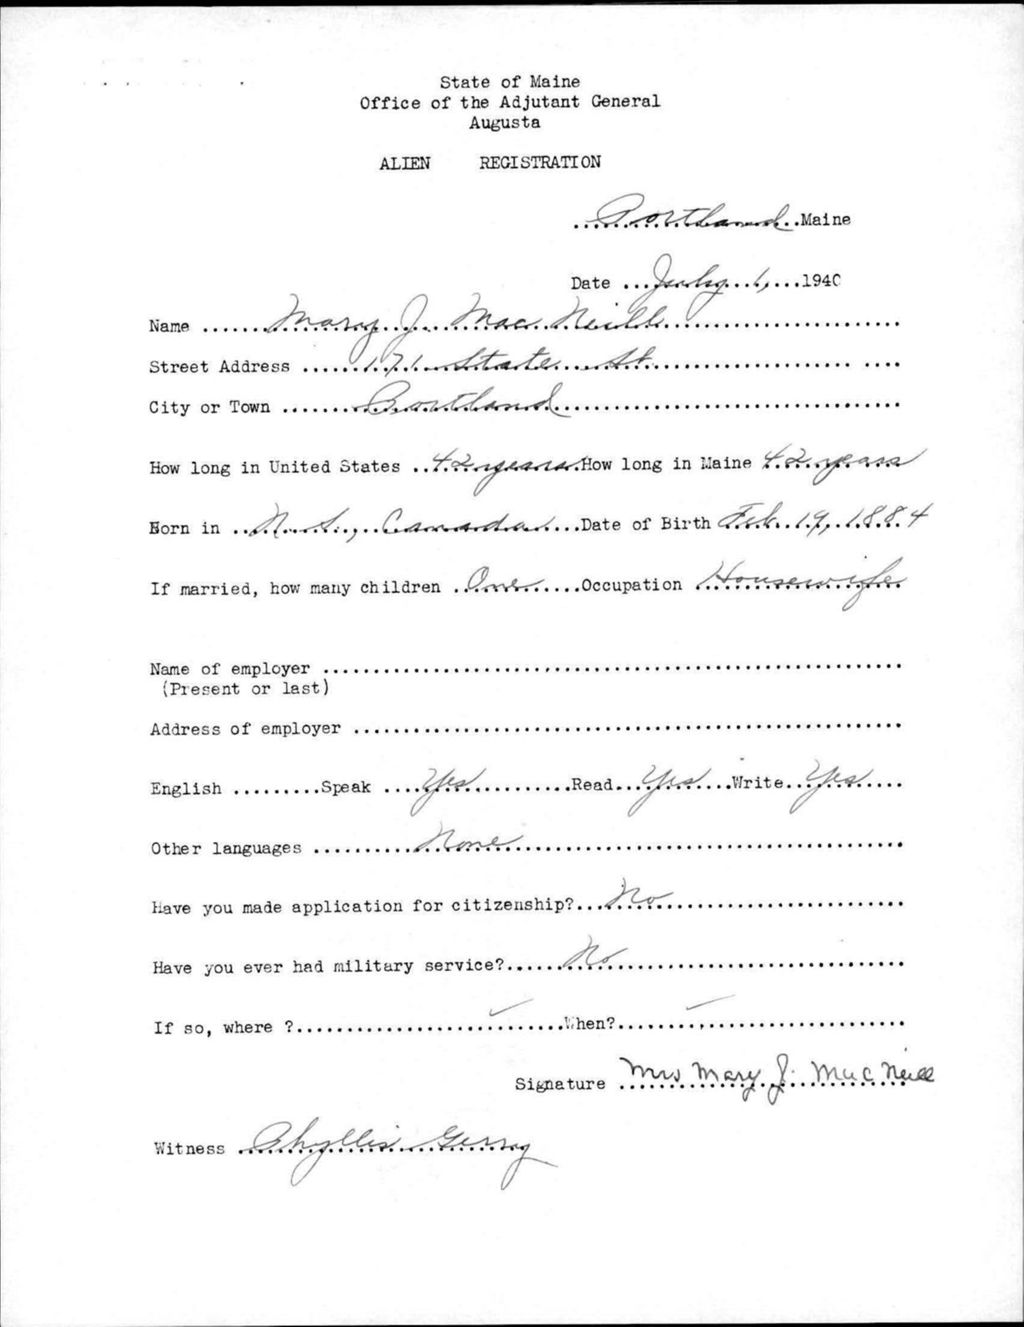 State of Maine
Office of the Adjutant General
Augusta
ALIEN REGISTRATION
Portland Maine
Date July 1, 1940
Name Mary J. Mac Neill
Street Address 171 State St.
City or Town Portland
How long in United States 42 years How long in Maine 42 years
Born in N. S., Canada Date of Birth Feb. 19, 1884
If married, how many children One Occupation Housewife
Name of employer
(Present or last)
Address of employer
English Speak Yes Read Yes Write Yes
Other languages None
Have you made application for citizenship? No
Have you ever had military service? No
If so, where ? When?
Signature Mrs Mary J. MacNeill
Witness Phyllis Gerry